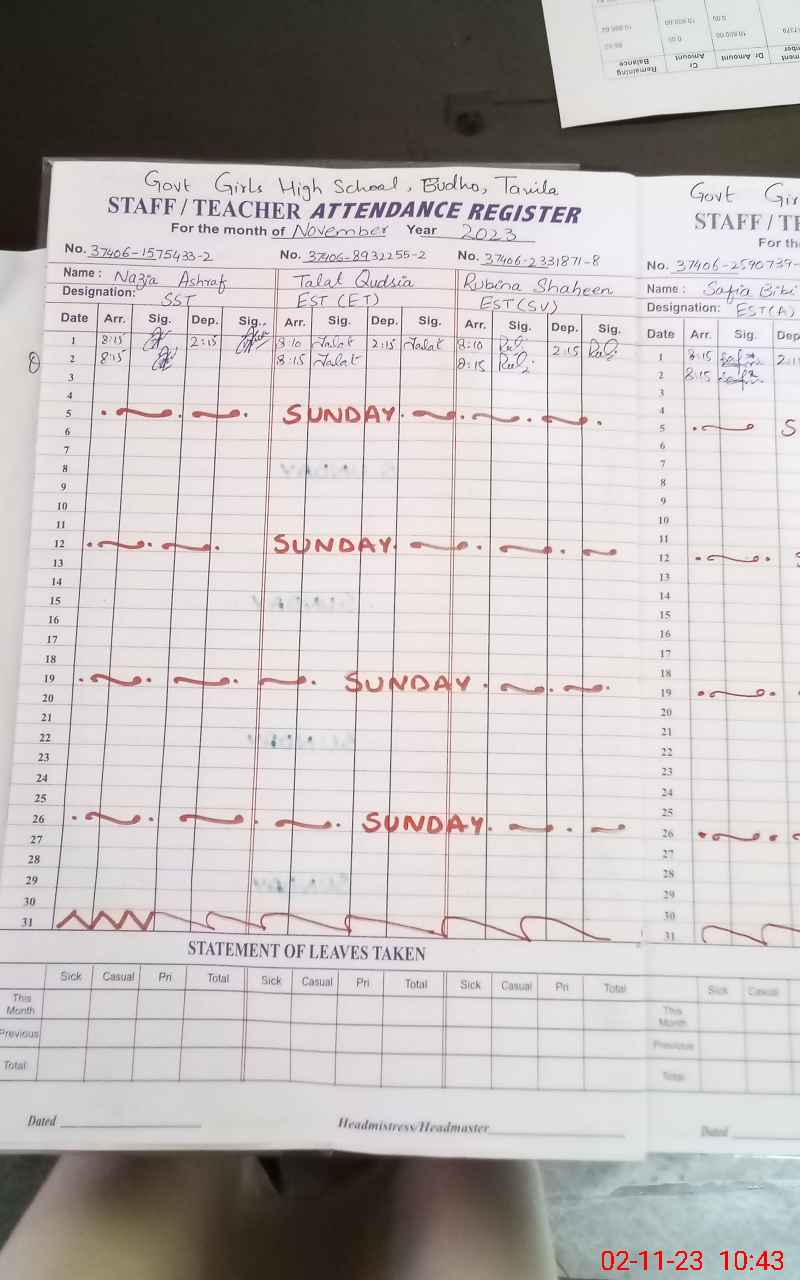 Remaining Balance
Cr Amount
Dr Amount
0.00
10,600.00
Govt Girls High School, Budho, Taxila
STAFF / TEACHER ATTENDANCE REGISTER
For the month of November Year 2023
No. 37406-1575433-2 No. 37406-8932255-2 No. 37406-2331871-8
Name : Nazia Ashraf Talat Qudsia Rubina Shaheen
Designation: SST EST (ET) EST (SV)
Date Arr. Sig. Dep. Sig. Arr. Sig. Dep. Sig. Arr. Sig. Dep. Sig.
1 8:15 2:15 8:10 Talat 2:15 Talat 8:10 2:15
2 8:15 8:15 Talat 8:15
3
4
5 SUNDAY
6
7
8
9
10
11
12 SUNDAY
13
14
15
16
17
18
19 SUNDAY
20
21
22
23
24
25
26 SUNDAY
27
28
29
30
31
STATEMENT OF LEAVES TAKEN
Sick Casual Pri Total Sick Casual Pri Total Sick Casual Pri Total
This Month
Previous
Total
Dated Headmistress/Headmaster
Govt Gir
STAFF / TE
For th
No. 37406-2590739-
Name : Safia Bibi
Designation: EST(A)
Date Arr. Sig. Dep
1 8:15 2:1
2 8:15
3
4
5 S
6
7
8
9
10
11
12
13
14
15
16
17
18
19
20
21
22
23
24
25
26
27
28
29
30
31
Sick Casual
This Month
Previous
Total
Dated
02-11-23 10:43